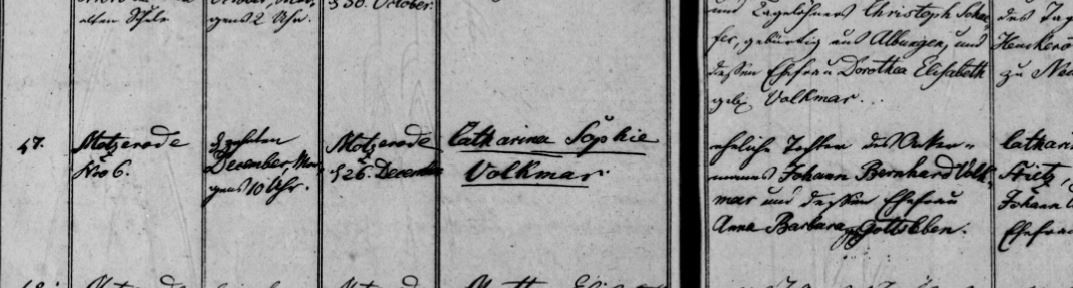 alten Schule
gens 2 Uhr.
d 30. October.
und Tagelöhners Christoph Schae-
fer, gebürtig aus Albungen, und
dessen Ehefrau Dorothea Elisabeth
geb. Volkmar.
des Tag
zu
47.
Motzerode
Nro 6.
December, Mor-
gens 10 Uhr.
Motzerode
d 26. December
Catharina Sophie
Volkmar.
eheliche Tochter des Acker-
manns Johann Bernhard Volk-
mar und dessen Ehefrau
Anna Barbara Gottsleben.
Catharin
Johann
Ehefrau